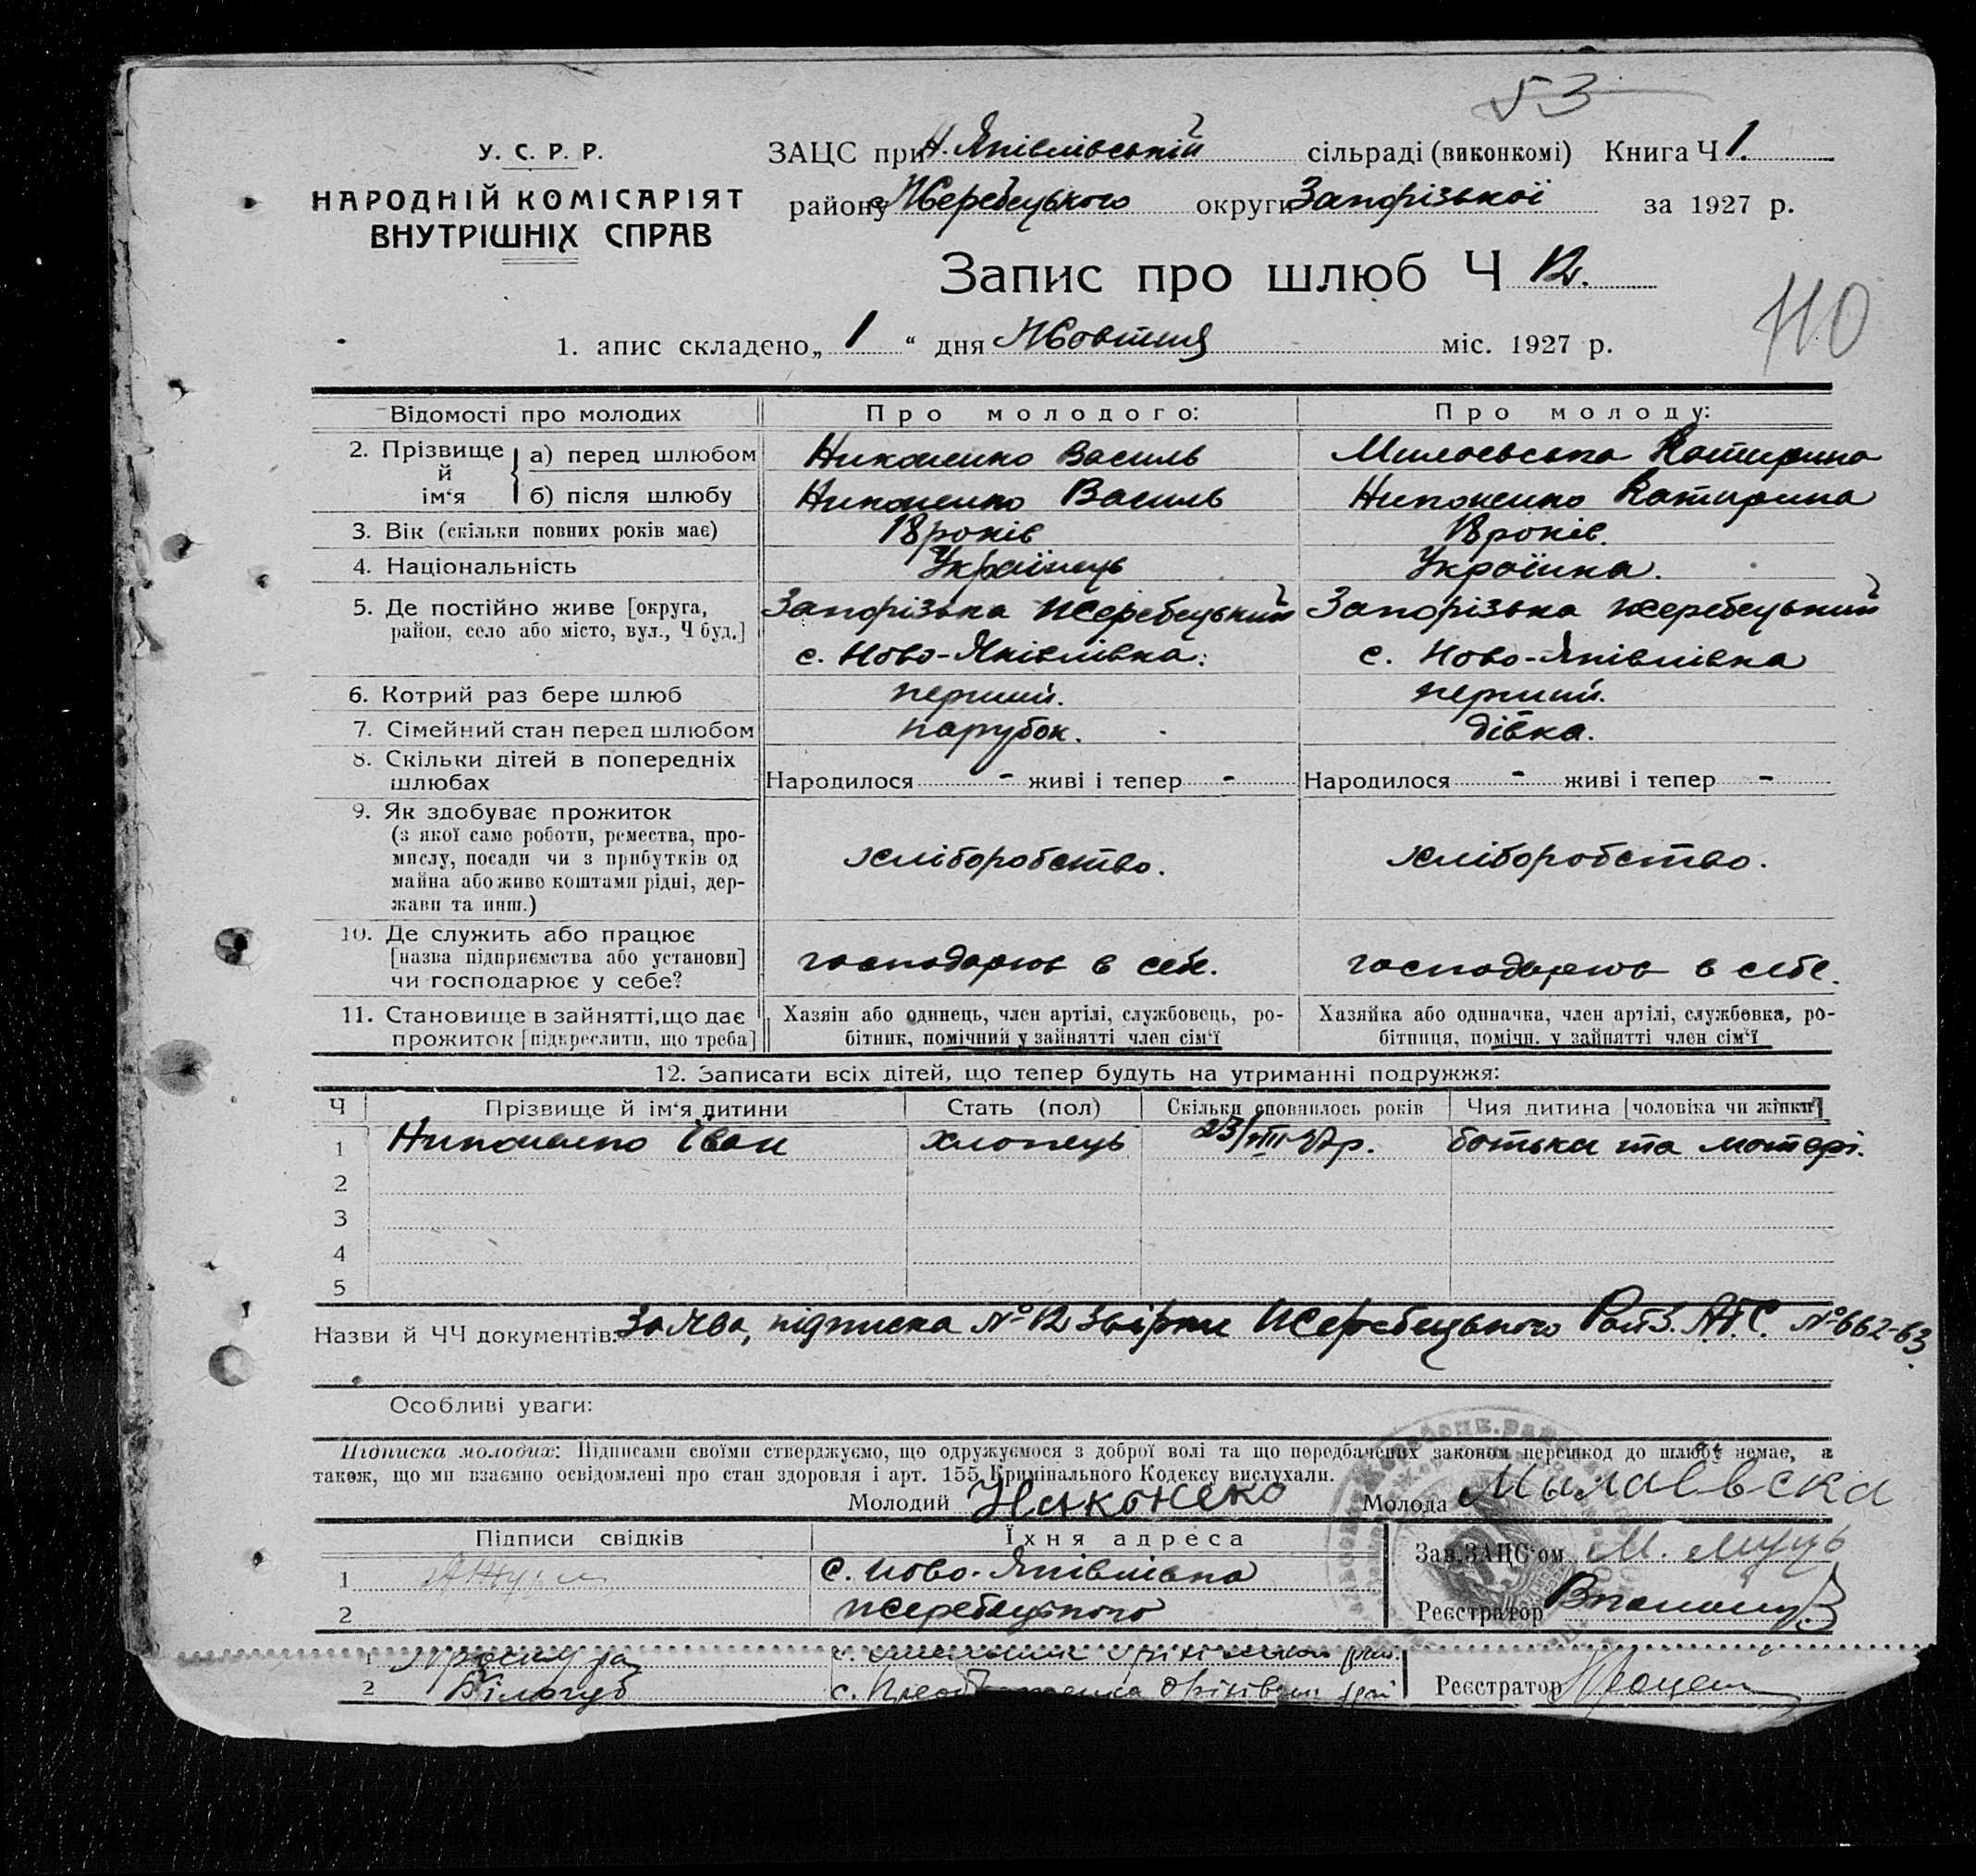 53
У. С. Р. Р.
НАРОДНІЙ КОМІСАРІЯТ
ВНУТРІШНІХ СПРАВ
ЗАЦС при Н. Яківлівській сільраді (виконкомі) Книга Ч 1.
району Жеребецького округи Запорізької за 1927 р.
Запис про шлюб Ч 12.
110
1. апис складено „ 1 “ дня Жовтня міс. 1927 р.
Відомості про молодих
Про молодого:
Про молоду:
2. Прізвище й ім‘я
а) перед шлюбом
Никоненко Василь
Милаєвська Катирина
б) після шлюбу
Никоненко Василь
Никоненко Катирина
3. Вік (скільки повних років має)
18 років
18 років.
4. Національність
Українець
Українка.
5. Де постійно живе [округа,
район, село або місто, вул., Ч буд.]
Запорізька Жеребецький
с. Ново-Яківлівка:
Запорізька Жеребецький
с. Ново-Яківлівка
6. Котрий раз бере шлюб
перший.
перший.
7. Сімейний стан перед шлюбом
парубок.
дівка.
8. Скільки дітей в попередніх
шлюбах
Народилося - живі і тепер -
Народилося - живі і тепер -
9. Як здобуває прожиток
(з якої саме роботи, ремества, про-
мислу, посади чи з прибутків од
майна або живе коштами рідні, дер-
жави та инш.)
хліборобство.
хліборобство.
10. Де служить або працює
[назва підприємства або установи]
чи господарює у себе?
господарює в себе.
господарює в себе.
11. Становище в зайнятті, що дає
прожиток [підкреслити, що треба]
Хазяін або одинець, член артілі, службовець, ро-
бітник, помічний у зайнятті член сім‘ї
Хазяйка або одиначка, член артілі, службовка, ро-
бітниця, помічн. у зайнятті член сім‘ї
12. Записати всіх дітей, що тепер будуть на утриманні подружжя:
Ч
Прізвище й ім‘я дитини
Стать (пол)
Скільки сповнилось років
Чия дитина [чоловіка чи жінки]
1 Никоненко Іван хлопець 23/VIII-27р. батька та матері.
2
3
4
5
Назви й ЧЧ документів: Заява, підписка № 12 Жеребецького № 662-63.
Особливі уваги:
Підписка молодих: Підписами своїми стверджуємо, що одружуємося з доброї волі та що передбачених законом перешкод до шлюбу немає, а
також, що ми взаємно освідомлені про стан здоровля і арт. 155 Кримінального Кодексу вислухали.
Молодий Никонеко
Молода Милаевска
Підписи свідків
Їхня адреса
Зав. ЗАЦС‘ом
1
с. Ново-Яківлівка
2
Жеребецького
Реєстратор
1
2 Білогуб
Реєстратор